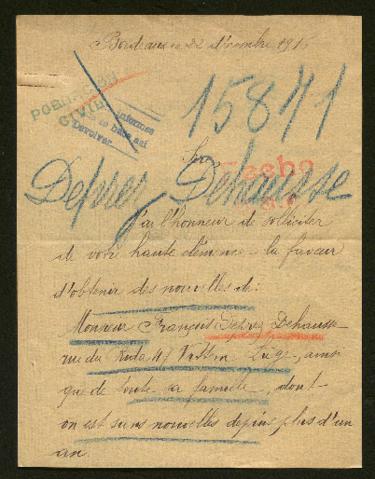 Bordeaux 22 décembre 191
POBLACIÓN
CIVIL
informes
Devolver
15841
Sire
Hecho
Deprez Dehausse
J'ai l'honneur de solliciter
de votre haute clémence la faveur
d'obtenir des nouvelles de:
Monsieur François Deprez Dehausse
rue du Liège, ainsi
que de toute sa famille, dont
on est sans nouvelles depuis plus d'un
an.